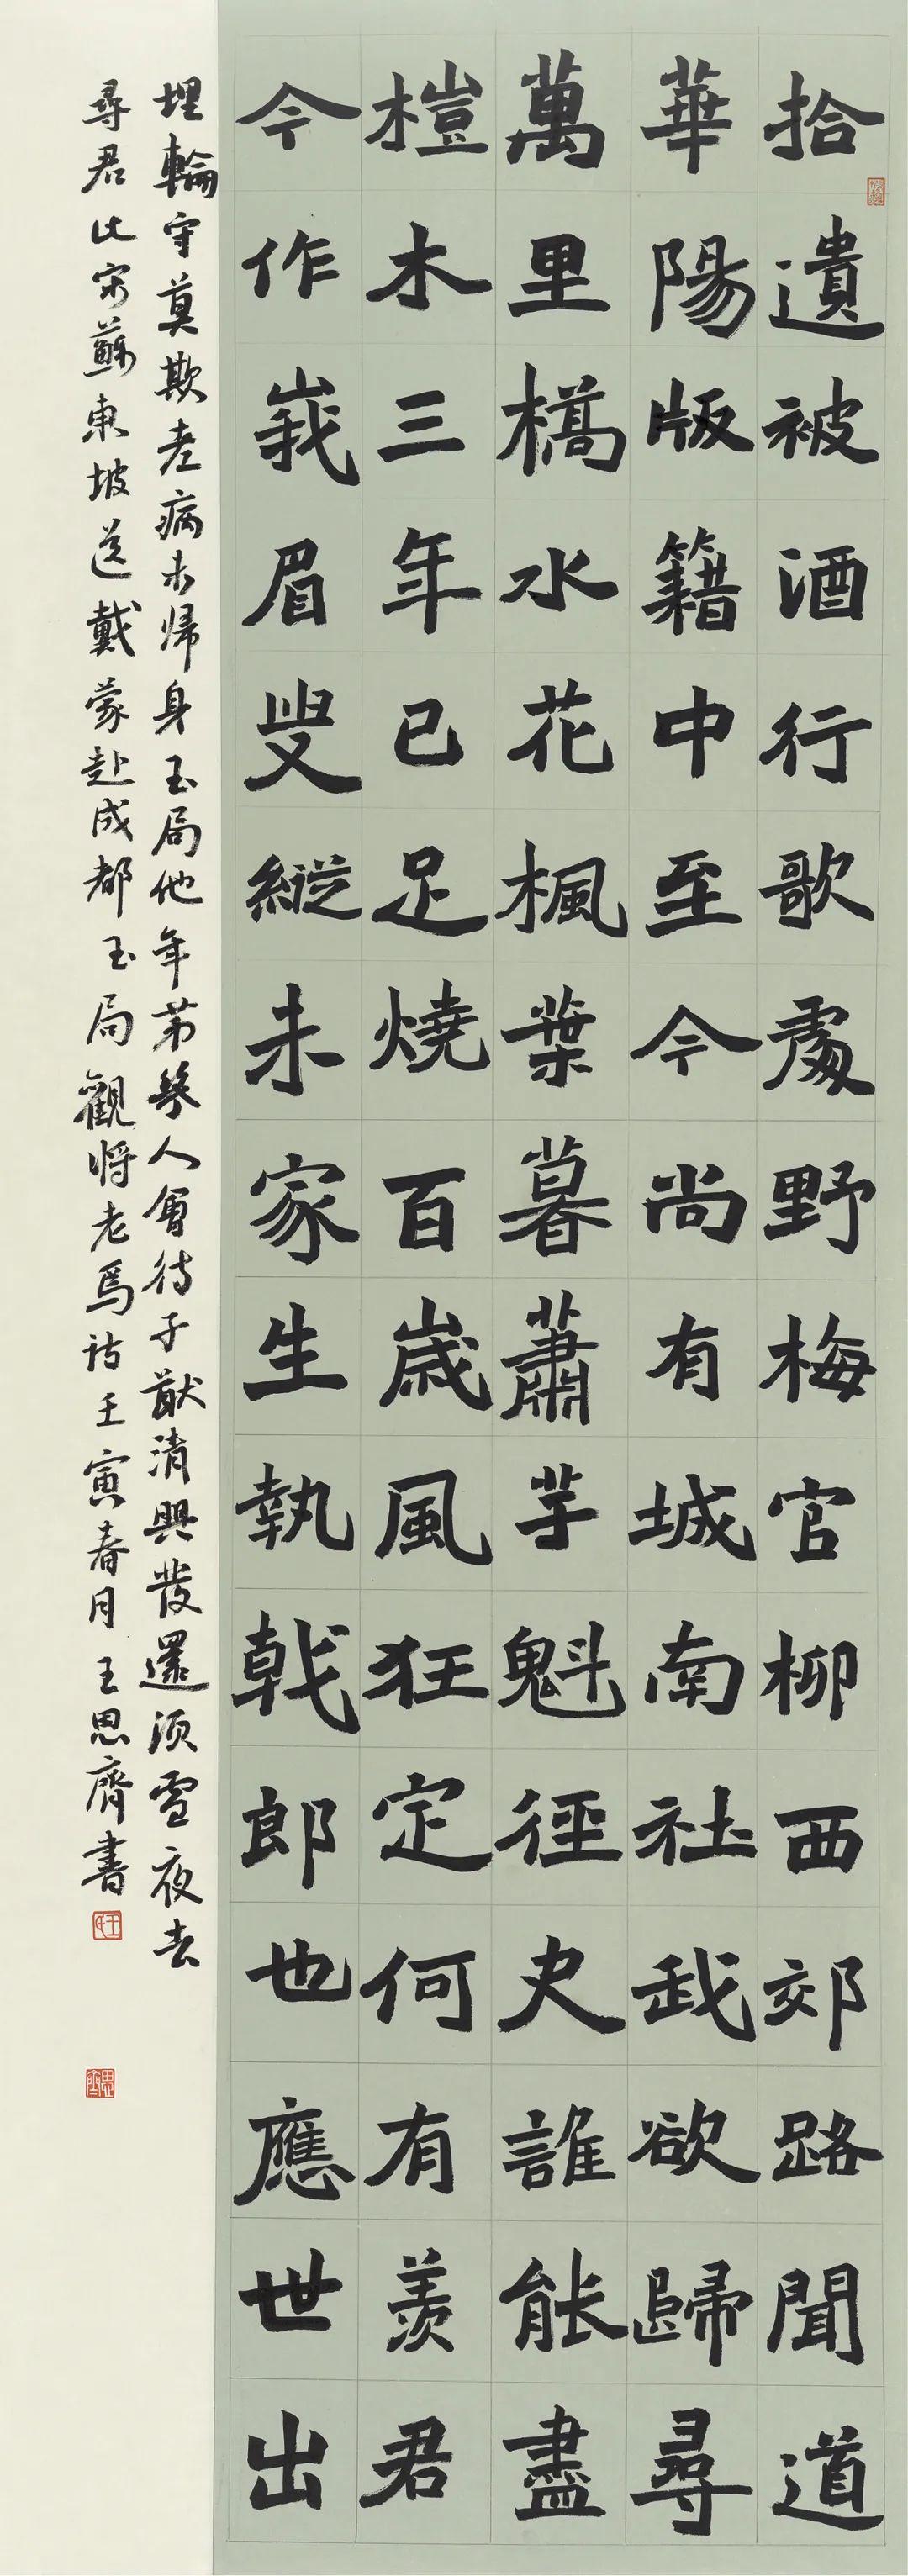 拾遺被酒行歌處野梅官柳西郊路聞道
華陽版籍中至今尚有城南社我欲歸尋
萬里橋水花楓葉暮蕭芋魁徑尺誰能盡
榿木三年已足燒百歲風狂定何有羨君
今作峩眉叟縱未家生執戟郎也應世出
埋輪守莫欺老病未歸身玉局他年第幾人會待子猷清興發還須雪夜去
尋君此宋蘇東坡送戴蒙赴成都玉局觀將老焉詩壬寅春月王思齊書
思齊